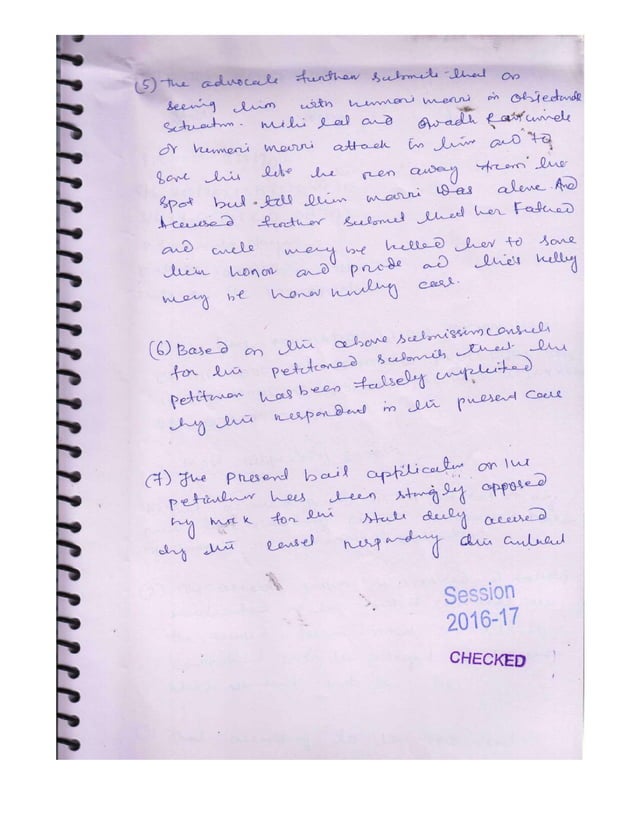 (5) The advocate further submits that on
seeing him with kumari manri in objectionable
situation. Mihi Lal and Awadh Ram uncle
of kumari manri attack on him and to
save his life he ran away from the
spot but till him manri was alive. And
Accused further submit that her Father
and uncle may be killed her to save
their honor and pride and this killing
may be honor killing case.
(6) Based on the above submission consels
for the petitioned submits that the
petitioner has been falsely implicated
by the respondent in the present case
(7) The present bail application on the
petitioner has been strongly opposed
by for the state duly accused
by the consel responding
Session
2016-17
CHECKED